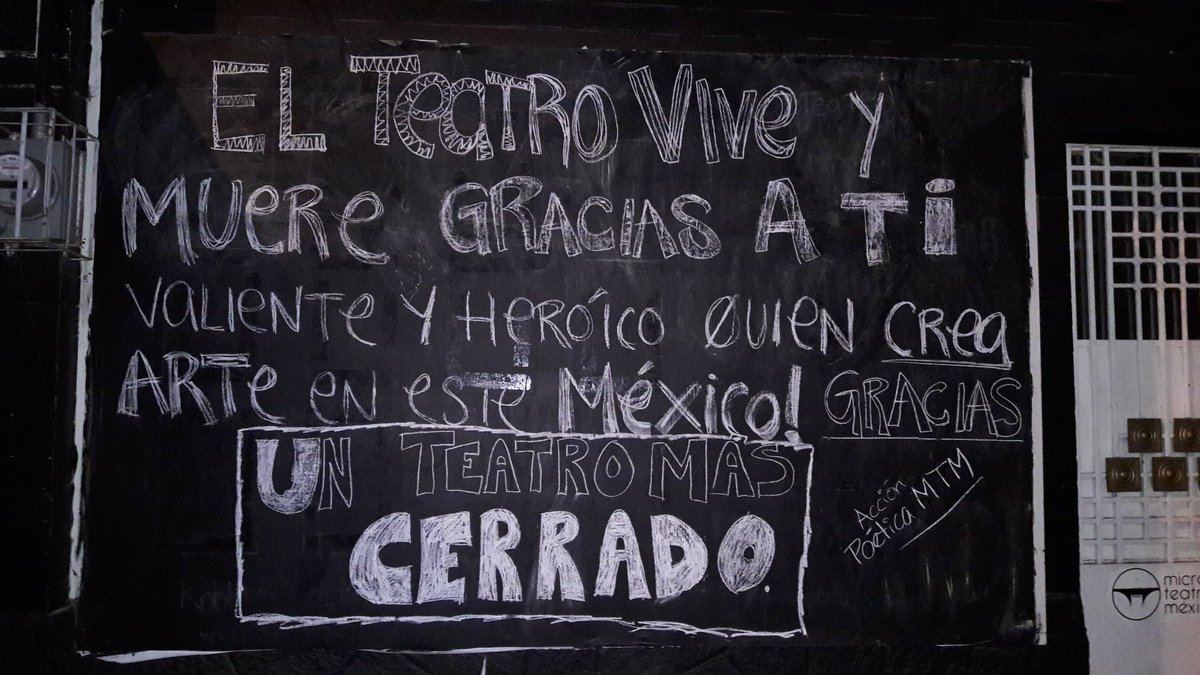 EL TeaTRO Vive y
MUeRe GRACIAS A Ti
VALIENTe Y HeRÓICO QUIEN CREA
ARTe en este México! GRACIAS
UN TEATRO MÁS
CERRADO.
Acción
Póética MTM
micro
teatr
méxic